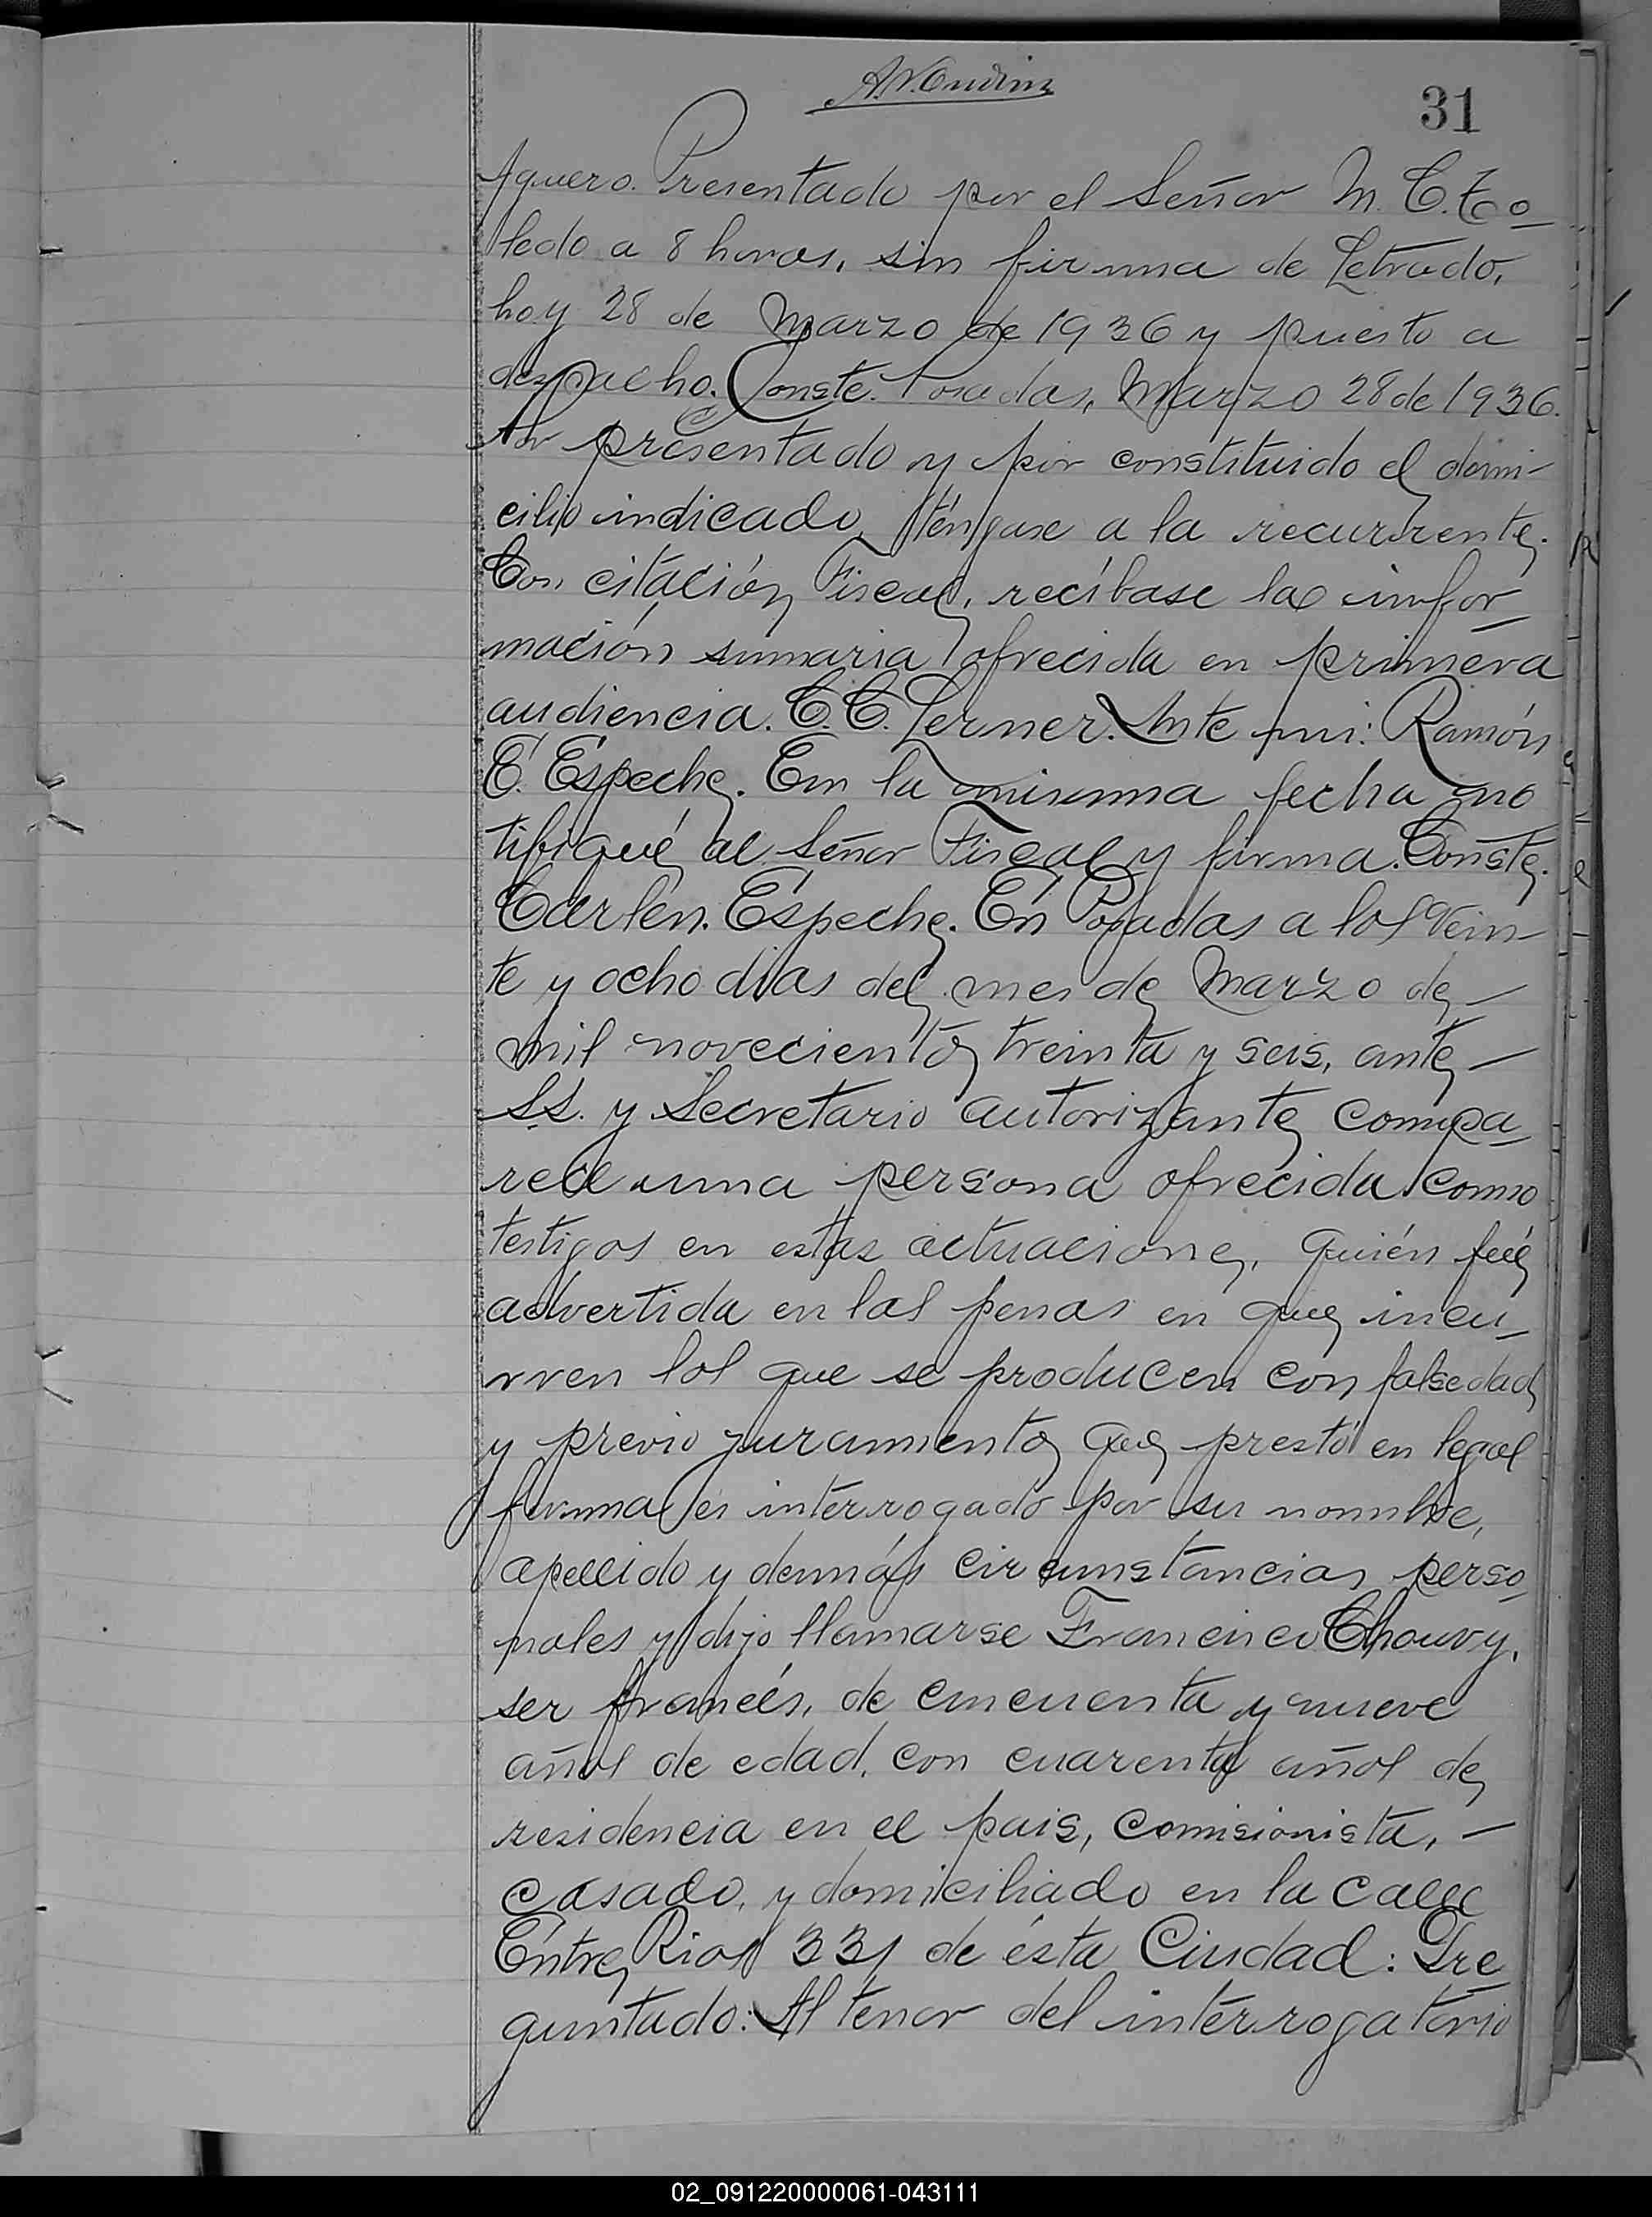 31
Aguero. Presentado por el Señor M. C. To_
ledo a 8 horas, sin firma de Letrado,
hoy 28 de Marzo de 1936 y puesto a
despacho. Conste. Posadas, Marzo 28 de 1936.
Por presentado y por constituido el domi-
cilio indicado, téngase a la recurrente.
Con citación Fiscal, recíbase la infor_
mación sumaria ofrecida en primera
audiencia. C. C. Lerner. Ante mi: Ramón
E. Espeche. En la misma fecha no
tifiqué al Señor Fiscal y firma. Conste.
Carlén. Espeche. En Posadas a los vein-
te y ocho dias del mes de Marzo de-
mil novecientos treinta y seis, ante-
S.S. y Secretario autorizante compa_
rece una persona ofrecida como
testigos en estas actuaciones, quién fué
advertida en las penas en que incu_
rren los que se producen con falsedad
y previo juramento que prestó en legal
forma es interrogado por su nombre,
apellido y demás circunstancias perso_
nales y dijo llamarse Francisco Chouvy,
ser francés, de cincuenta y nueve
años de edad, con cuarenta años de
residencia en el pais, comisionista, -
casado, y domiciliado en la calle
Entre Rios 331 de ésta Ciudad: Pre_
guntado: Al tenor del interrogatorio
02_091220000061-043111